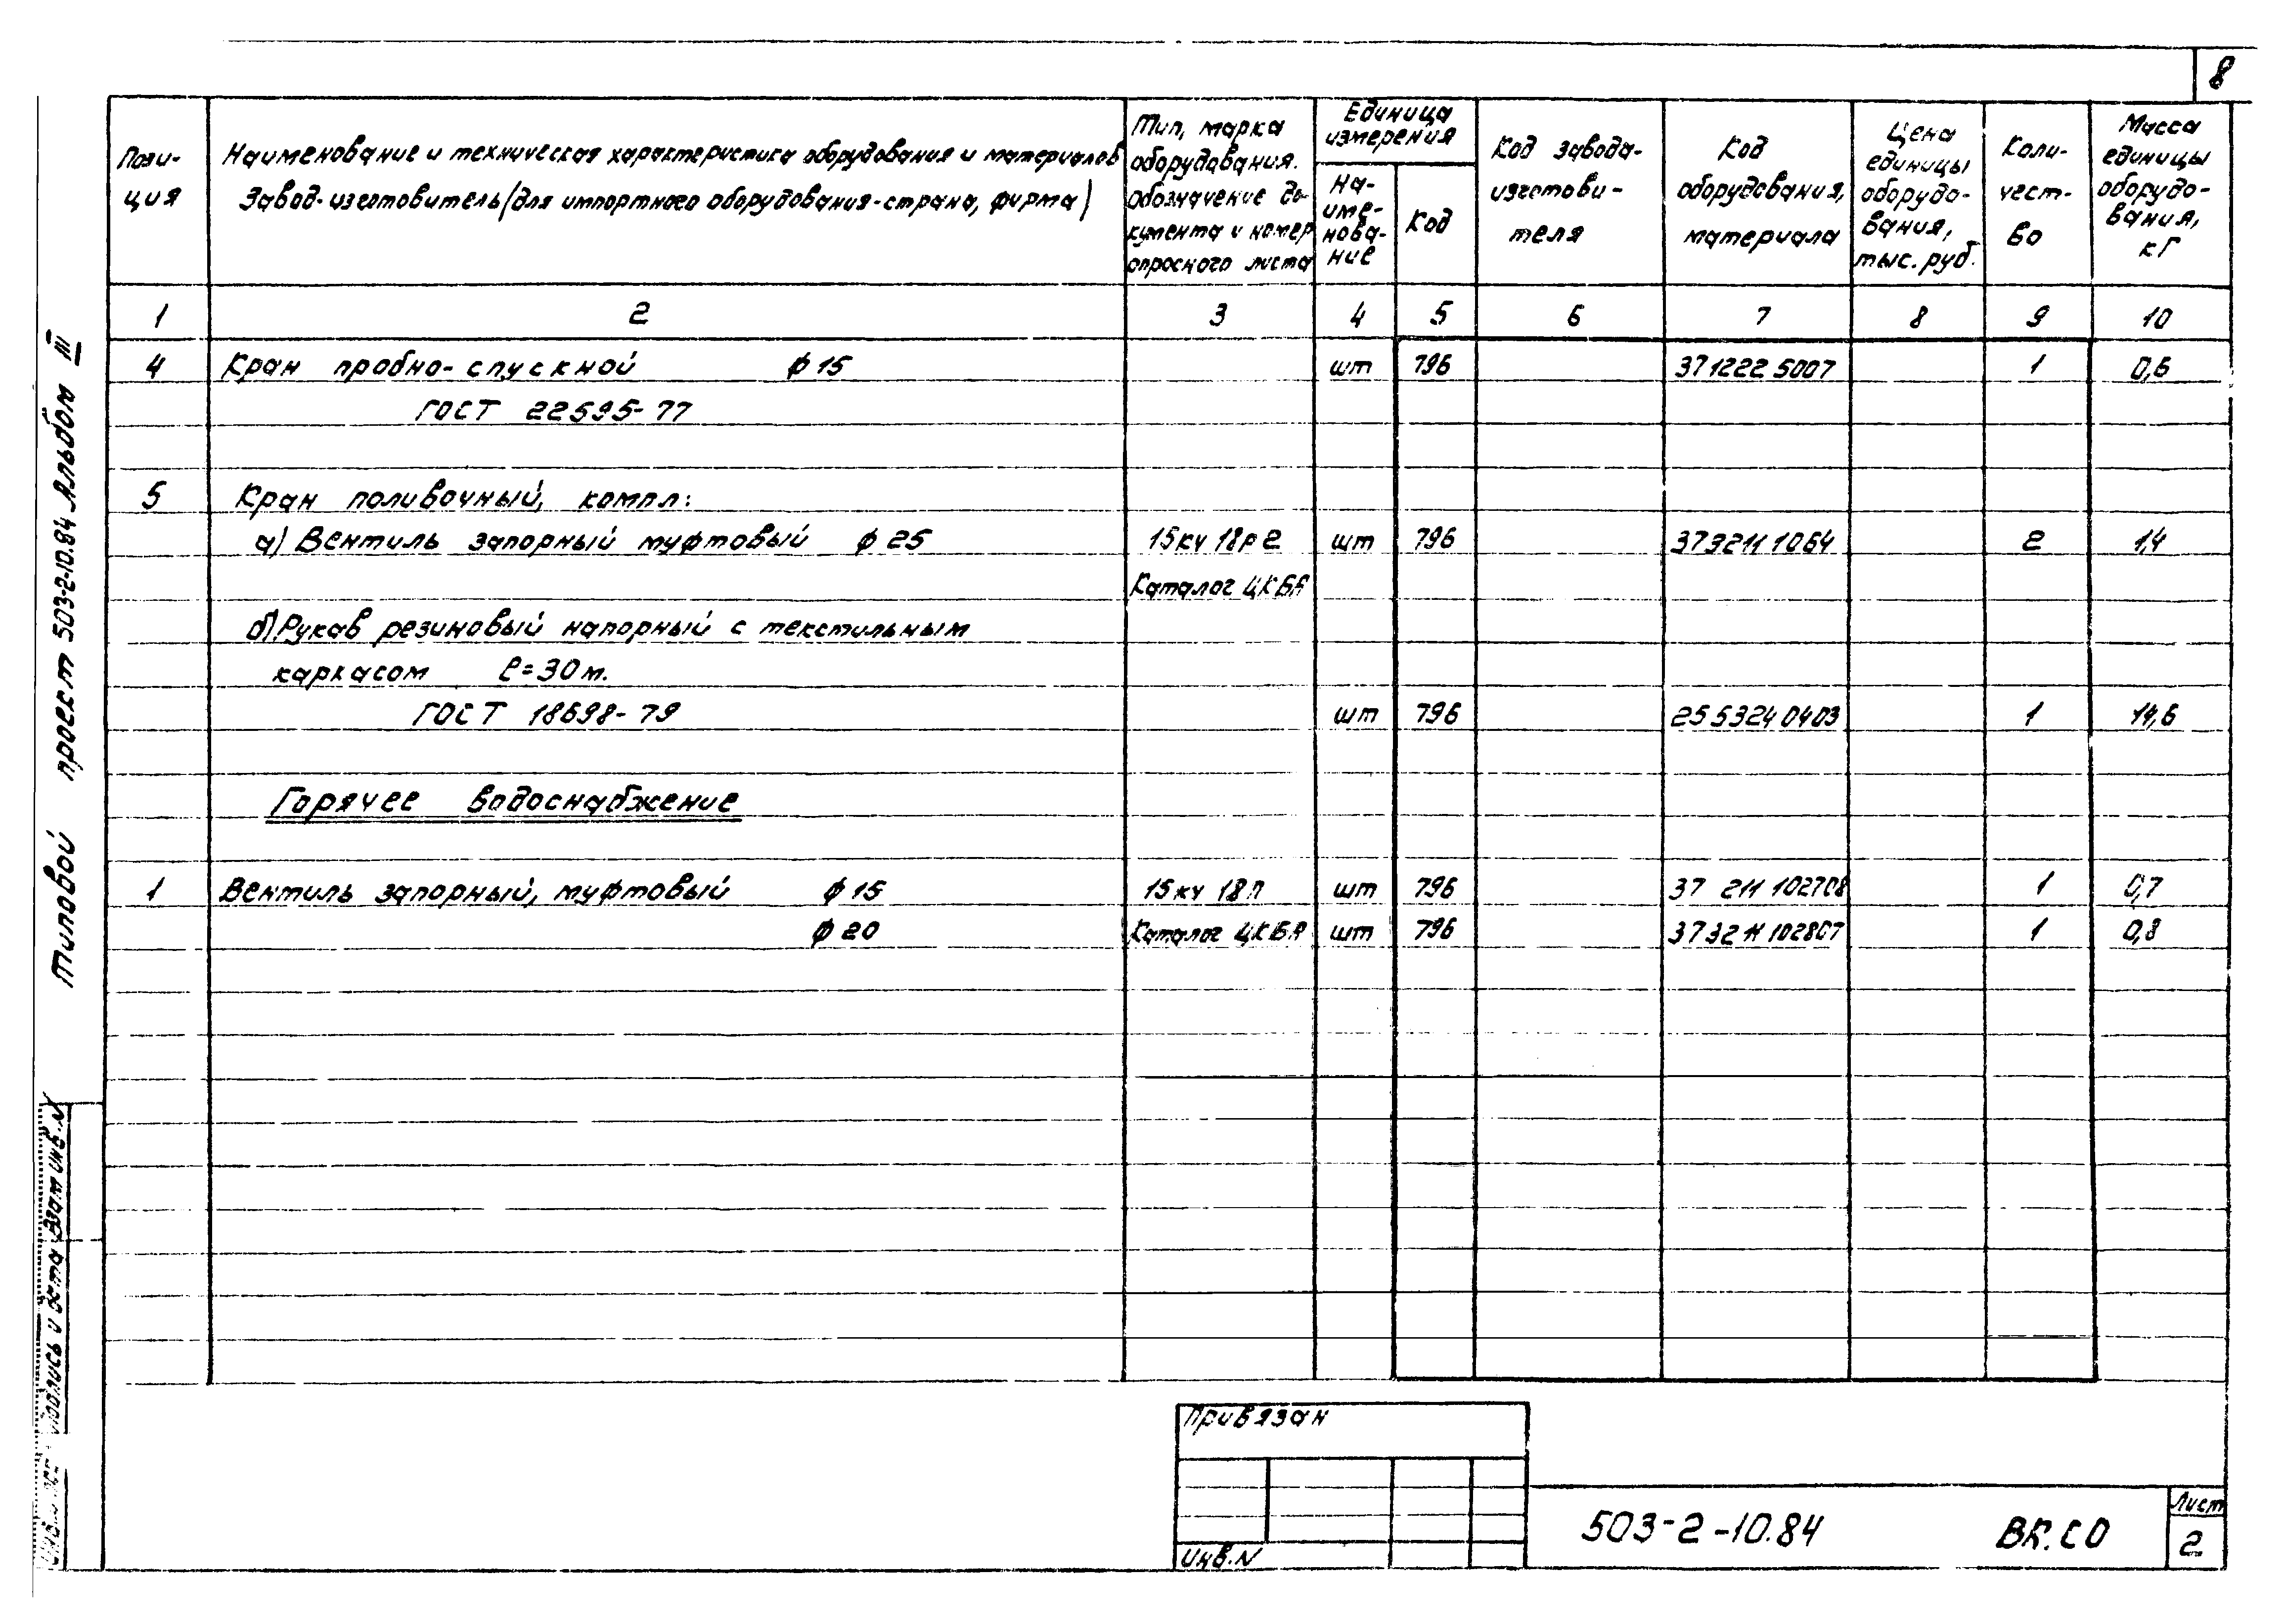 8
Пози-
ция
Наименование и техническая характеристика оборудования и материалов
Завод-изготовитель/для импортного оборудования-страна, фирма)
Тип, марка
оборудования.
Обозначение до-
кумента и номер
опросного листа
Единица
измерения
На-
име-
нова-
ние
Код
Код завода-
изготови-
теля
Код
оборудования,
материала
Цена
единицы
оборудо-
вания,
тыс. руб.
Коли-
чест-
во
Масса
единицы
оборудо-
вания,
кГ
1 2 3 4 5 6 7 8 9 10
4 Кран пробно-спускной ϕ 15 шт 796 3712225007 1 0,6
ГОСТ 22595-77
5 Кран поливочный, компл:
а) Вентиль запорный муфтовый ϕ 25 15кч 18р2 шт 796 3732111064 2 1,4
Каталог ЦКБА
б) Рукав резиновый напорный с текстильным
каркасом ℓ=30м.
ГОСТ 18698-79 шт 796 2553240403 1 14,6
Горячее водоснабжение
1 Вентиль запорный, муфтовый ϕ 15 15кч 18п шт 796 37 211 102708 1 0,7
ϕ 20 Каталог ЦКБА шт 796 373211102807 1 0,8
Типовой проект 503-2-10.84 Альбом III
Взам инв. N
Подпись и дата
Привязан
Инв. N
503-2-10.84 ВК.СО
Лист
2